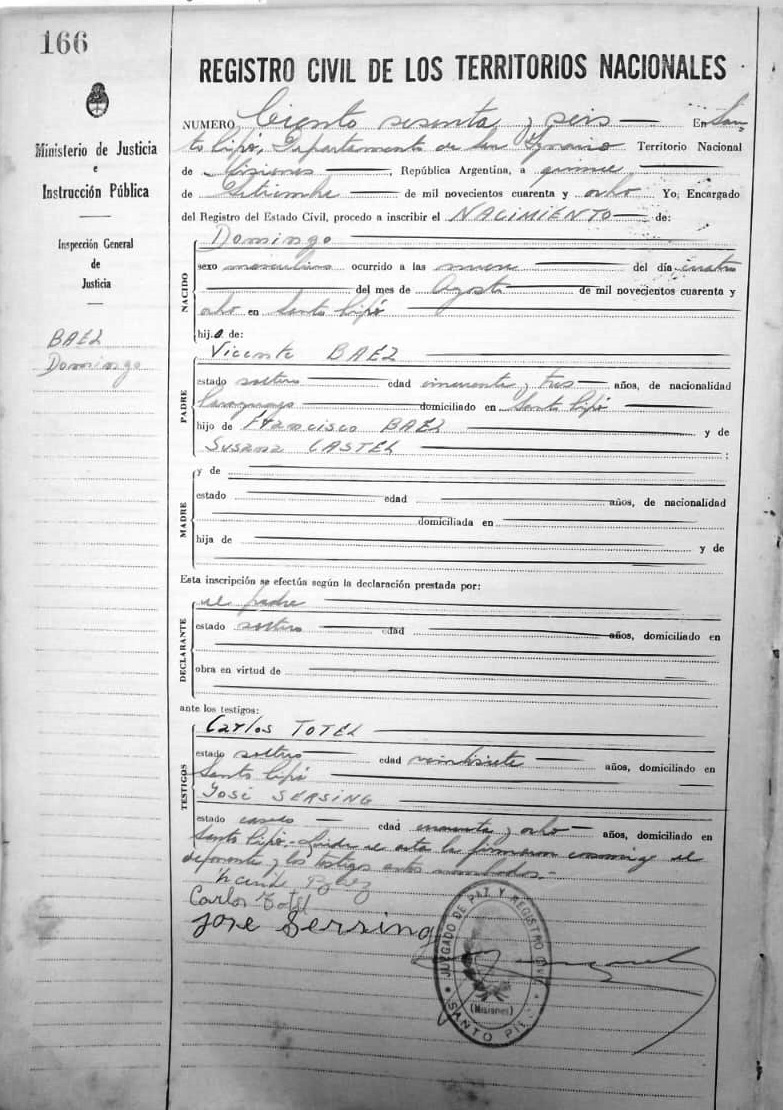 166
REGISTRO CIVIL DE LOS TERRITORIOS NACIONALES
Ministerio de Justicia
e
Instrucción Pública
Inspección General
de
Justicia
BAEZ
Domingo
NUMERO Ciento sesenta y seis En San-
to Pipó, Departamento de San Ignacio Territorio Nacional
de Misiones, República Argentina, a quince
de Setiembre de mil novecientos cuarenta y ocho Yo, Encargado
del Registro del Estado Civil, procedo a inscribir el NACIMIENTO de:
NACIDO
Domingo
sexo masculino ocurrido a las nueve del día cuatro
del mes de Agosto de mil novecientos cuarenta y
ocho en Santo Pipó
hijo de:
PADRE
Vicente BAEZ
estado soltero edad cincuenta y tres años, de nacionalidad
Paraguayo domiciliado en Santo Pipó
hijo de Francisco BAEZ y de
Susana CASTEL ;
MADRE
y de
estado edad años, de nacionalidad
domiciliada en
hija de y de
Esta inscripción se efectúa según la declaración prestada por:
DECLARANTE
el padre
estado soltero edad años, domiciliado en
obra en virtud de
ante los testigos:
TESTIGOS
Carlos TOTEL
estado soltero edad veintisiete años, domiciliado en
Santo Pipó
José SERSING
estado casado edad cuarenta y ocho años, domiciliado en
Santo Pipó. Leída el acta la firmaron conmigo el
deponente y los testigos antes nombrados.-
Vicente Baez
Carlos Totel
Jose Sersing
JUZGADO DE PAZ Y REGISTRO CIVIL
(Misiones)
SANTO PIPÓ